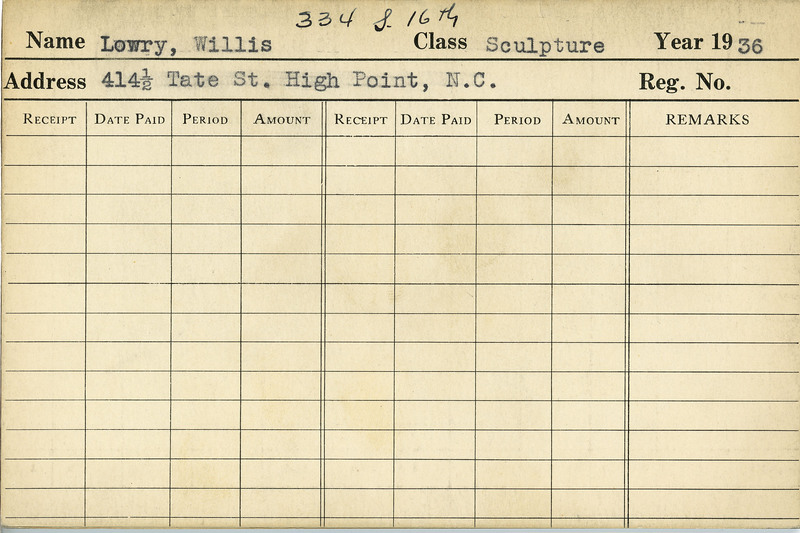 334 S. 16th
Name Lowry, Willis Class Sculpture Year 19 36
Address 414½ Tate St. High Point, N.C. Reg. No.
RECEIPT DATE PAID PERIOD AMOUNT RECEIPT DATE PAID PERIOD AMOUNT REMARKS